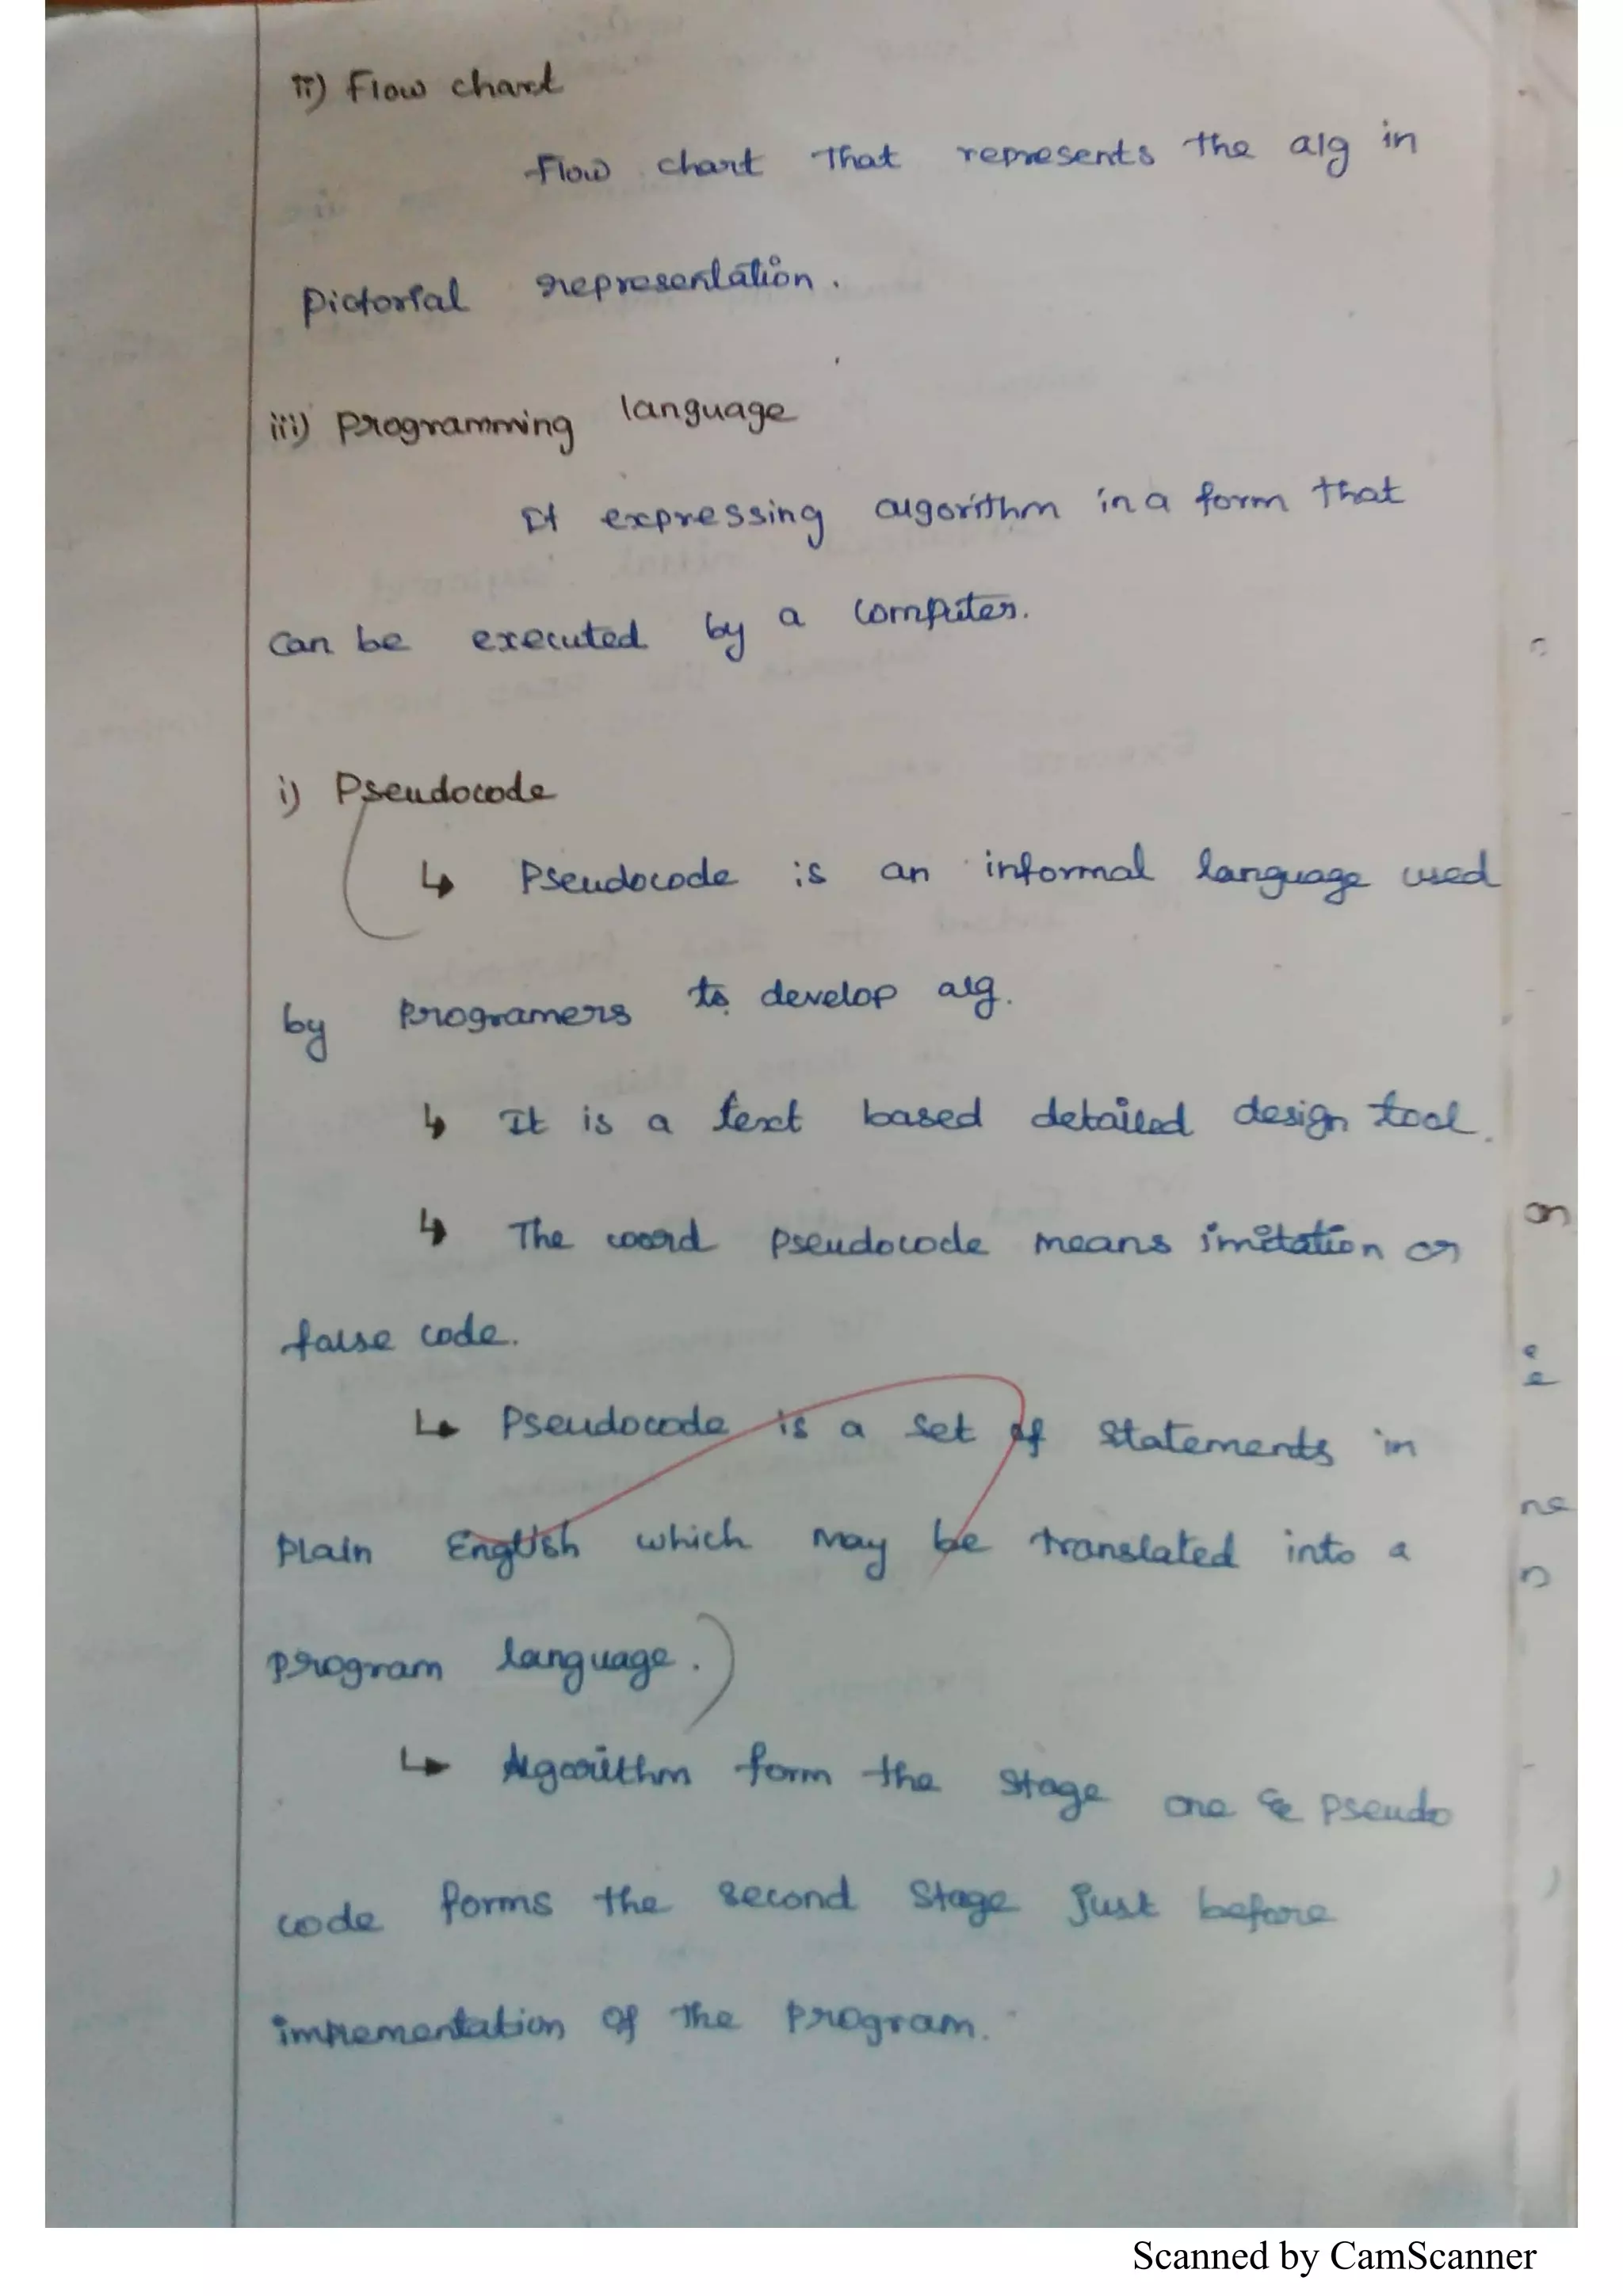 ii) Flow chart
Flow chart that represents the alg in
pictorial representation.
iii) Programming language
It expressing algorithm in a form that
can be executed by a computer.
i) Pseudocode
↳ Pseudocode is an informal language used
by programers to develop alg.
↳ It is a text based detailed design tool.
↳ The word pseudocode means imitation or
false code.
↳ Pseudocode is a set of statements in
plain English which may be translated into a
program language.
↳ Algorithm form the stage one & pseudo
code forms the second stage just before
implementation of the program.
Scanned by CamScanner